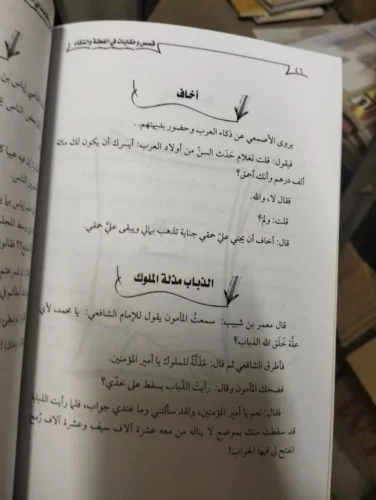 ٤٦ قصص وحكايات في الفطنة والذكاء
أخاف
يروى الأصمعي عن ذكاء العرب وحضور بديهتهم..
فيقول: قلت لغلام حَدَث السنّ من أولاد العرب: أيسرك أن يكون لك مائة
ألف درهم وأنك أحمق؟
فقال لا، والله.
قلت: ولِمَ؟
قال: أخاف أن يجني عليّ حمقي جناية تذهب بمالي ويبقى عليَّ حمقي
الذباب مذلة الملوك
قال معمر بن شبيب: سمعتُ المأمون يقول للإمام الشافعي: يا محمد، لأي
علَّة خَلَق الله الذباب؟
فأطرق الشافعي ثم قال: مَذَلَّةٌ للملوك يا أمير المؤمنين.
فضحك المأمون وقال: رأيتَ الذّباب يسقط على خدّي؟
فقال: نعم يا أمير المؤمنين، ولقد سألتني وما عندي جواب، فلما رأيت الذبابة
قد سقطت منك بموضع لا يناله من معه عشرة آلاف سيف وعشرة آلاف رُمح
انفتح لي فيها الجواب!